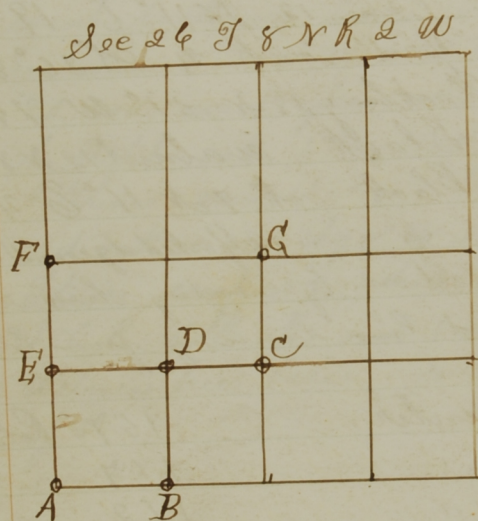 Sec 26 T 8 N R 2 W
F G
E D C
A B